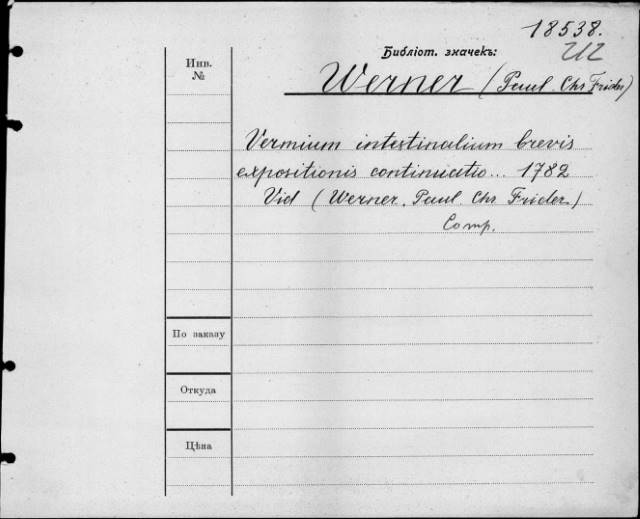 18538.
Библіот. значекъ:
Инв.
№
Werner (Paul Chr Frider)
Vermium intestinalium brevis
expositionis continuatio... 1782
Vid (Werner, Paul Chr Frider)
Comp.
По заказу
Откуда
Цѣна